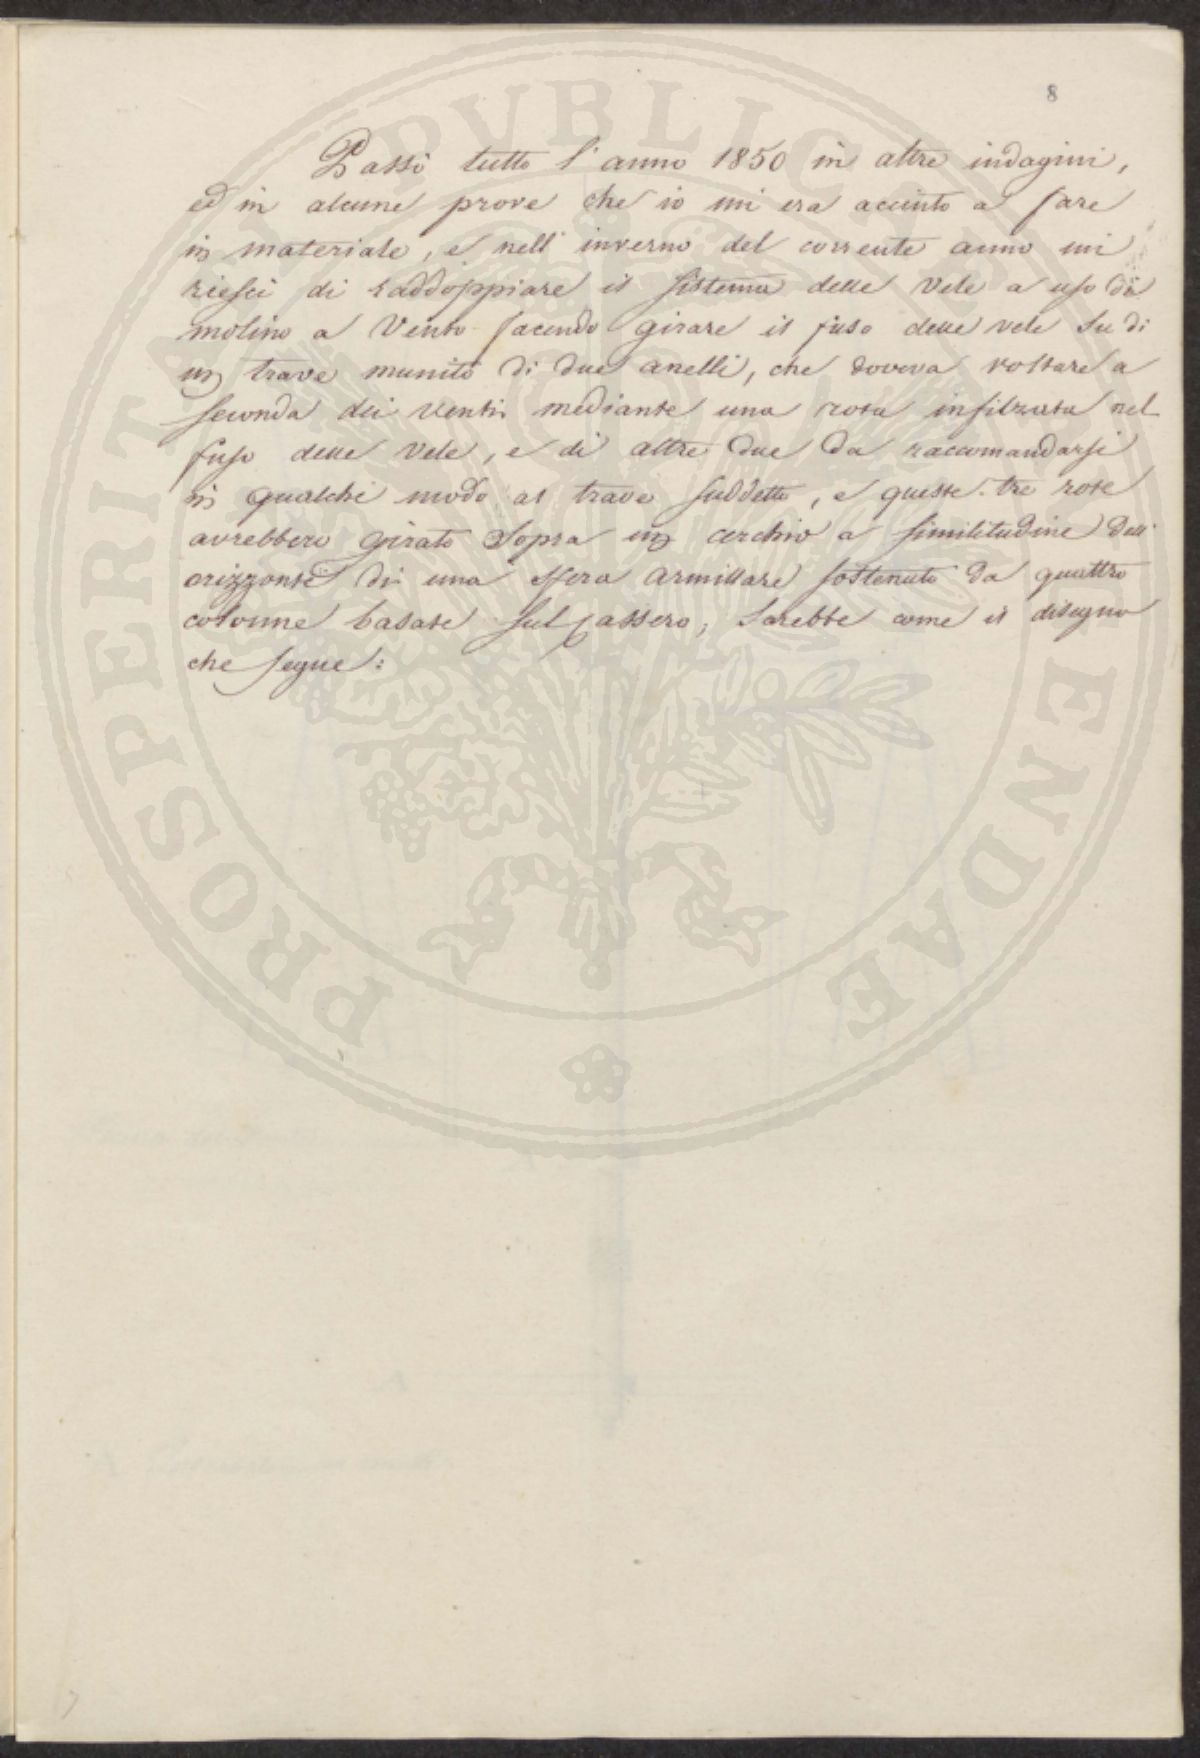 8
Passò tutto l'anno 1850 in altre indagini,
ed in alcune prove che io mi era accinto a fare
in materiale, e nell'inverno del corrente anno mi
riescì di raddoppiare il sistema delle vele a uso di
molino a Vento facendo girare il fuso delle vele su di
un trave munito di due anelli, che doveva voltare a
seconda dei venti mediante una rota infilzata nel
fuso delle vele, e di altre due da raccomandarsi
in qualche modo al trave suddetto, e queste tre rote
avrebbero girato sopra un cerchio a similitudine dell'
orizzonte di una sfera armillare sostenuto da quattro
colonne basate sul cassero, sarebbe come il disegno
che segue:
PROSPERITATI PVBLICAE AVGENDAE
7